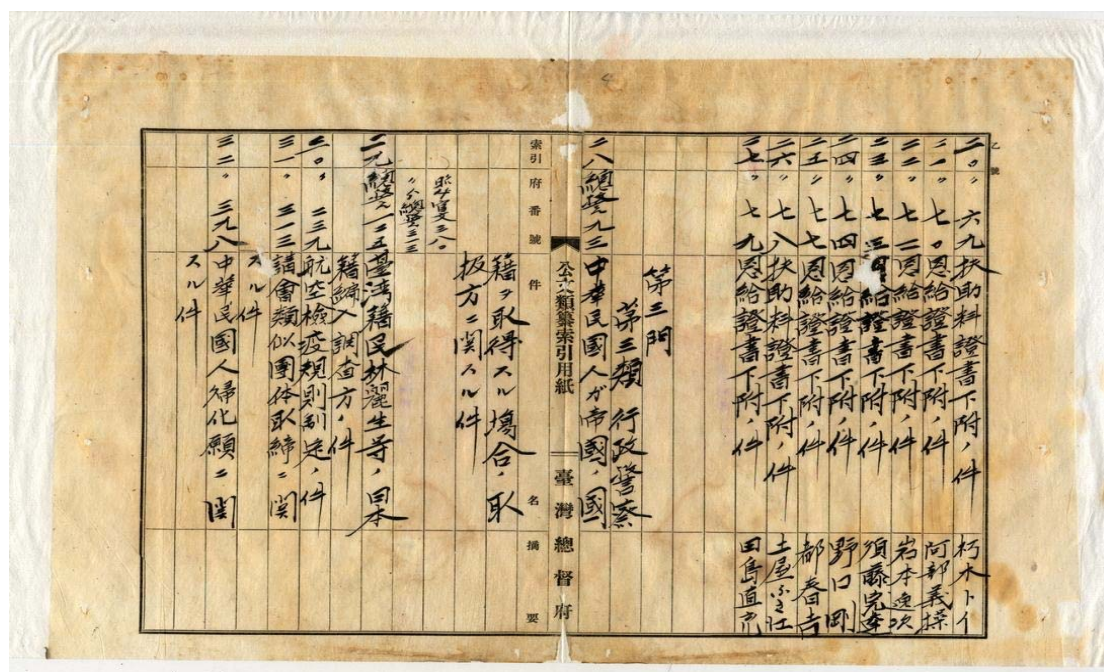 乙號
二〇〃六九扶助料證書下附ノ件 朽木トイ
二一〃七〇恩給證書下附ノ件 阿部義操
二二〃七二恩給證書下附ノ件 岩本逸次
二三〃七三恩給證書下附ノ件 須藤
二四〃七四恩給證書下附ノ件 野口剛
二五〃七七恩給證書下附ノ件 都春吉
二六〃七八扶助料證書下附ノ件 土屋
二七〃七九恩給證書下附ノ件 田島直
第三門
第三類 行政警察
二八總警九三中華民國人ガ帝國ノ國
索引 府番號 件名 摘要
公文類纂索引用紙 臺灣總督府
籍ヲ取得スル場合ノ取
扱方ニ関スル件
三八〇
〃總警三一三
二九總警一二五臺湾籍民林麗生等ノ日本
籍編入調査方ノ件
三〇〃二三九航空檢疫規則制定ノ件
三一〃三一三講會類似團体取締ニ関
スル件
三二〃三九八中華民國人歸化願ニ関
スル件